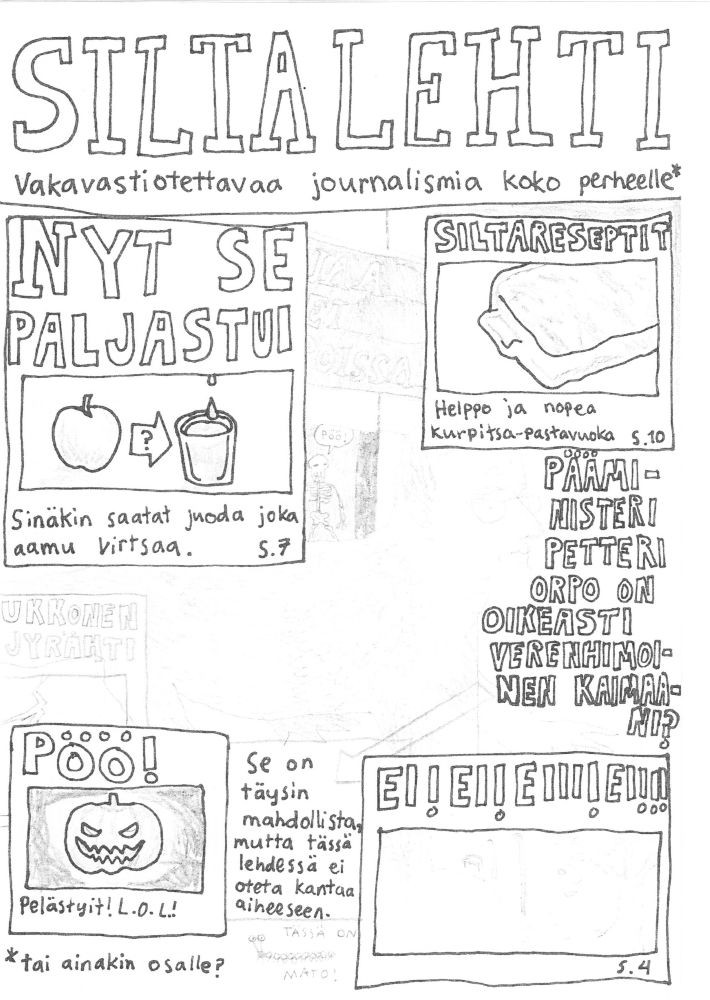 SILTALEHTI
Vakavastiotettavaa journalismia koko perheelle*
NYT SE
PALJASTUI
?
Sinäkin saatat juoda joka
aamu virtsaa. S.7
SILTARESEPTIT
Helppo ja nopea
kurpitsa-pastavuoka S.10
PÄÄMI-
NISTERI
PETTERI
ORPO ON
OIKEASTI
VERENHIMOI-
NEN KAIMAA-
NI?
PÖÖ!
UKKONEN
JYRÄHTI
PÖÖ!
Pelästyit! L.O.L.!
Se on
täysin
mahdollista,
mutta tässä
lehdessä ei
oteta kantaa
aiheeseen.
EI!EI!!EI!!!!EI!!!!
S.4
TÄSSÄ ON
MATO!
*tai ainakin osalle?